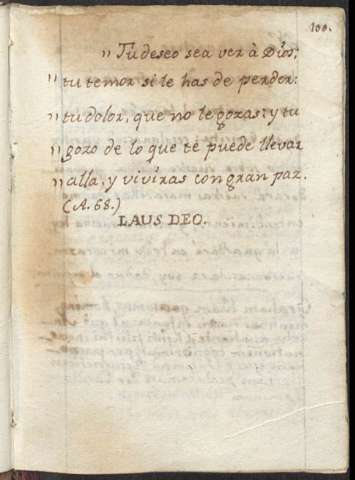 100.
" Tu deseo sea ver à Dios;
" tu temor si le has de perder:
" tu dolor, que no le gozas; y tu
" gozo de lo que te puede llevar
" alla, y viviras con gran paz.
(A. 68.)
LAUS DEO.